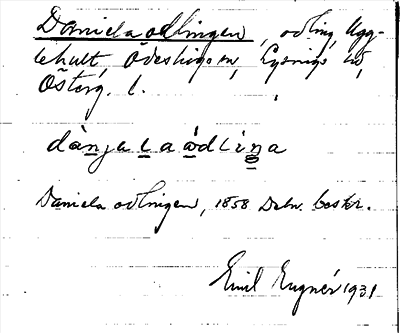 Danielaodlingen, odling, Ugg-
lehult, Ödeshögs sn, Lysings hd,
Österg. l.
dànjalaòdliŋa
Daniela odlingen, 1858 Debn. beskr.
Emil Eugnér 1931